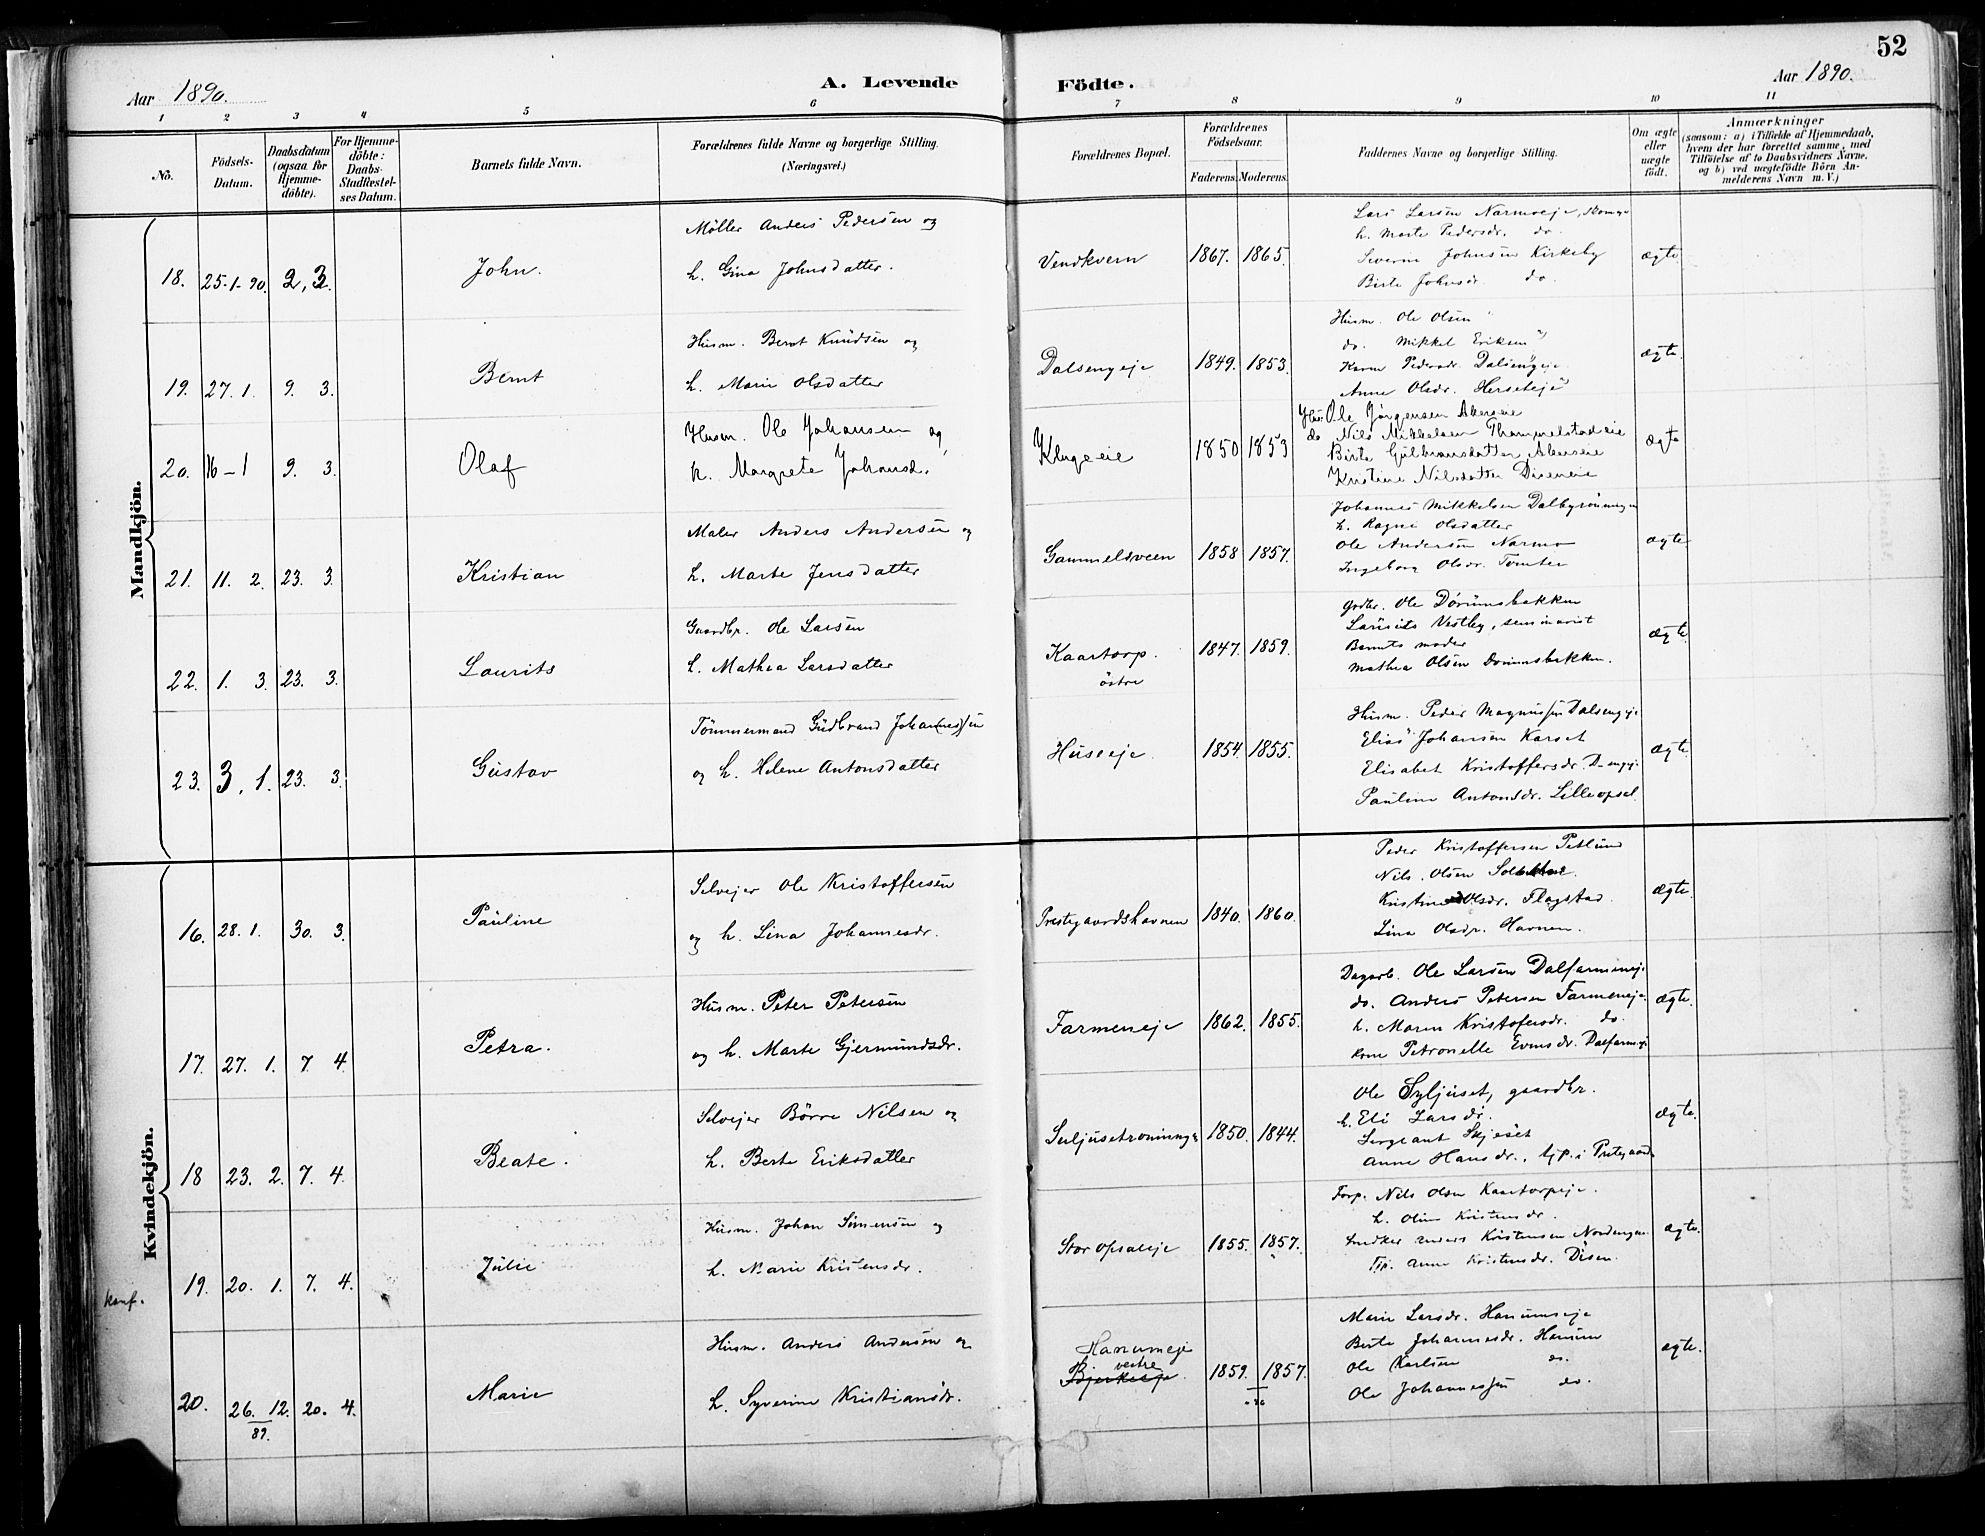 52
Aar 1890.
A. Levende Födte.
Aar 1890.
1 2 3 4 5 6 7 8 9 10 11
No.
Födsels-Datum.
Daabsdatum (ogsaa for Hjemme-döbte).
For Hjemme-döbte: Daabs-Stadfestel-ses Datum.
Barnets fulde Navn.
Forældrenes fulde Navne og borgerlige Stilling.
(Næringsvei.)
Forældrenes Bopæl.
Forældrenes Födselsaar.
Faderens. Moderens.
Faddernes Navne og borgerlige Stilling.
Om ægte eller uægte født.
Anmærkninger
(saasom: a) i Tilfælde af Hjemmedaab, hvem der har forrettet samme, med Tilföielse af to Daabsvidners Navne, og b) ved uægtefödte Börn Anmelderens Navn m. V.)
Mandkjön.
18. 25-1-90. 2, 3. John.
Möller Anders Pedersen og
h. Gina Johnsdatter.
Vendkvern 1867. 1865.
Lars Larsen Narmoeje,
h. Marte Pedersdr. do.
Severin Johnsen Kirkeby
Birte Johnsdr. do.
ægte
19. 27. 1. 9. 3. Bernt
Husm. Bernt Knudsen og
h. Marie Olsdatter
Dalsengeje 1849. 1853.
Husm. Ole Olsen
do. Mikkel Eriksen
Karen Pedersdr. Dalsengeje
Anne Olsdr. Herseteje
ægte.
20. 16-1 9. 3. Olaf
Husm. Ole Johansen og
h. Margrete Johansd.
Klugeeie 1850 1853
Hus. Ole Jörgensen Akerseie
do Nils Mikkelsen Thommelstadeie
Birte Gulbransdatter Akerseie
Kristine Nilsdatter Diseneie
ægte
21. 11. 2. 23. 3. Kristian
Maler Anders Andersen og
h. Marte Jensdatter
Gammelsveen 1858 1857.
Johannes Mikkelsen Dalbyröningen
h. Ragne Olsdatter
Ole Andersen Narmo
Ingeborg Olsdr. Tomter
ægte
22. 1. 3. 23. 3. Laurits
Gaardbr. Ole Larsen
h. Mathea Larsdatter
Kaartorp. östre 1847. 1859.
Gdbr. Ole Dörumsbakken
Laurits Vestby, seminarist
Barnets moder
Mathea Olsen Dorumsbakken.
ægte.
23. 3, 1. 23. 3. Gustav
Tömmermand Gudbrand Johannessen
og h. Helene Antonsdatter
Huseeje. 1854. 1855.
Husm. Peder Magnussen Dalsengeje
Elias Johansen Karset
Elisabet Kristoffersdr. D-engeje
Pauline Antonsdr. Lilleopsal.
ægte.
Kvindekjön.
16. 28. 1. 30. 3. Pauline
Selvejer Ole Kristoffersen
og h. Lina Johannesdr.
Prestegaardshavnen 1840. 1860.
Peder Kristoffersen Petlund
Nils Olsen
Kristine Olsdr. Flagstad.
Lina Olsdr. Havnen.
ægte.
17. 27. 1. 7. 4. Petra.
Husm. Peter Petersen
og h. Marte Gjermundsdr.
Farmeneje 1862. 1855.
Dagarb. Ole Larsen Dalfarmeneje.
do. Anders Petersen Farmeneje.
h. Maren Kristofersdr. do.
Petronelle Evensdr. Dalfarmeje
ægte.
18 23. 2. 7. 4. Beate.
Selvejer Börre Nilsen og
h. Berte Eriksdatter
Suljusetroninge 1850. 1844.
Ole Syljuset, gaardbr.
h. Eli Larsdr.
Sergeant Skjeset
Anne Hansdr., tjp. i Prstgaard.
ægte.
19. 20. 1. 7. 4. Julie
Husm. Johan Simensen og
h. Marie Kristensdr.
Stor opsaleje 1855. 1857.
Forp. Nils Olsen Kaartorpeje.
h. Oline Kristensdr.
Snedker Anders Kristensen Nordengen.
Tjp. Anne Kristensdr. Disen.
ægte.
konf.
20. 26. 12. 89. 20. 4. Marie
Husm. Anders Andersen og
h. Syverine Kristiansdr.
Hanumeje vestre
Bjerkeeje. 1859. 1857.
Marie Larsdr. Hanumseje
Birte Johannesdr. Hanum
Ole Karlsen do.
Ole Johannessen do.
ægte.